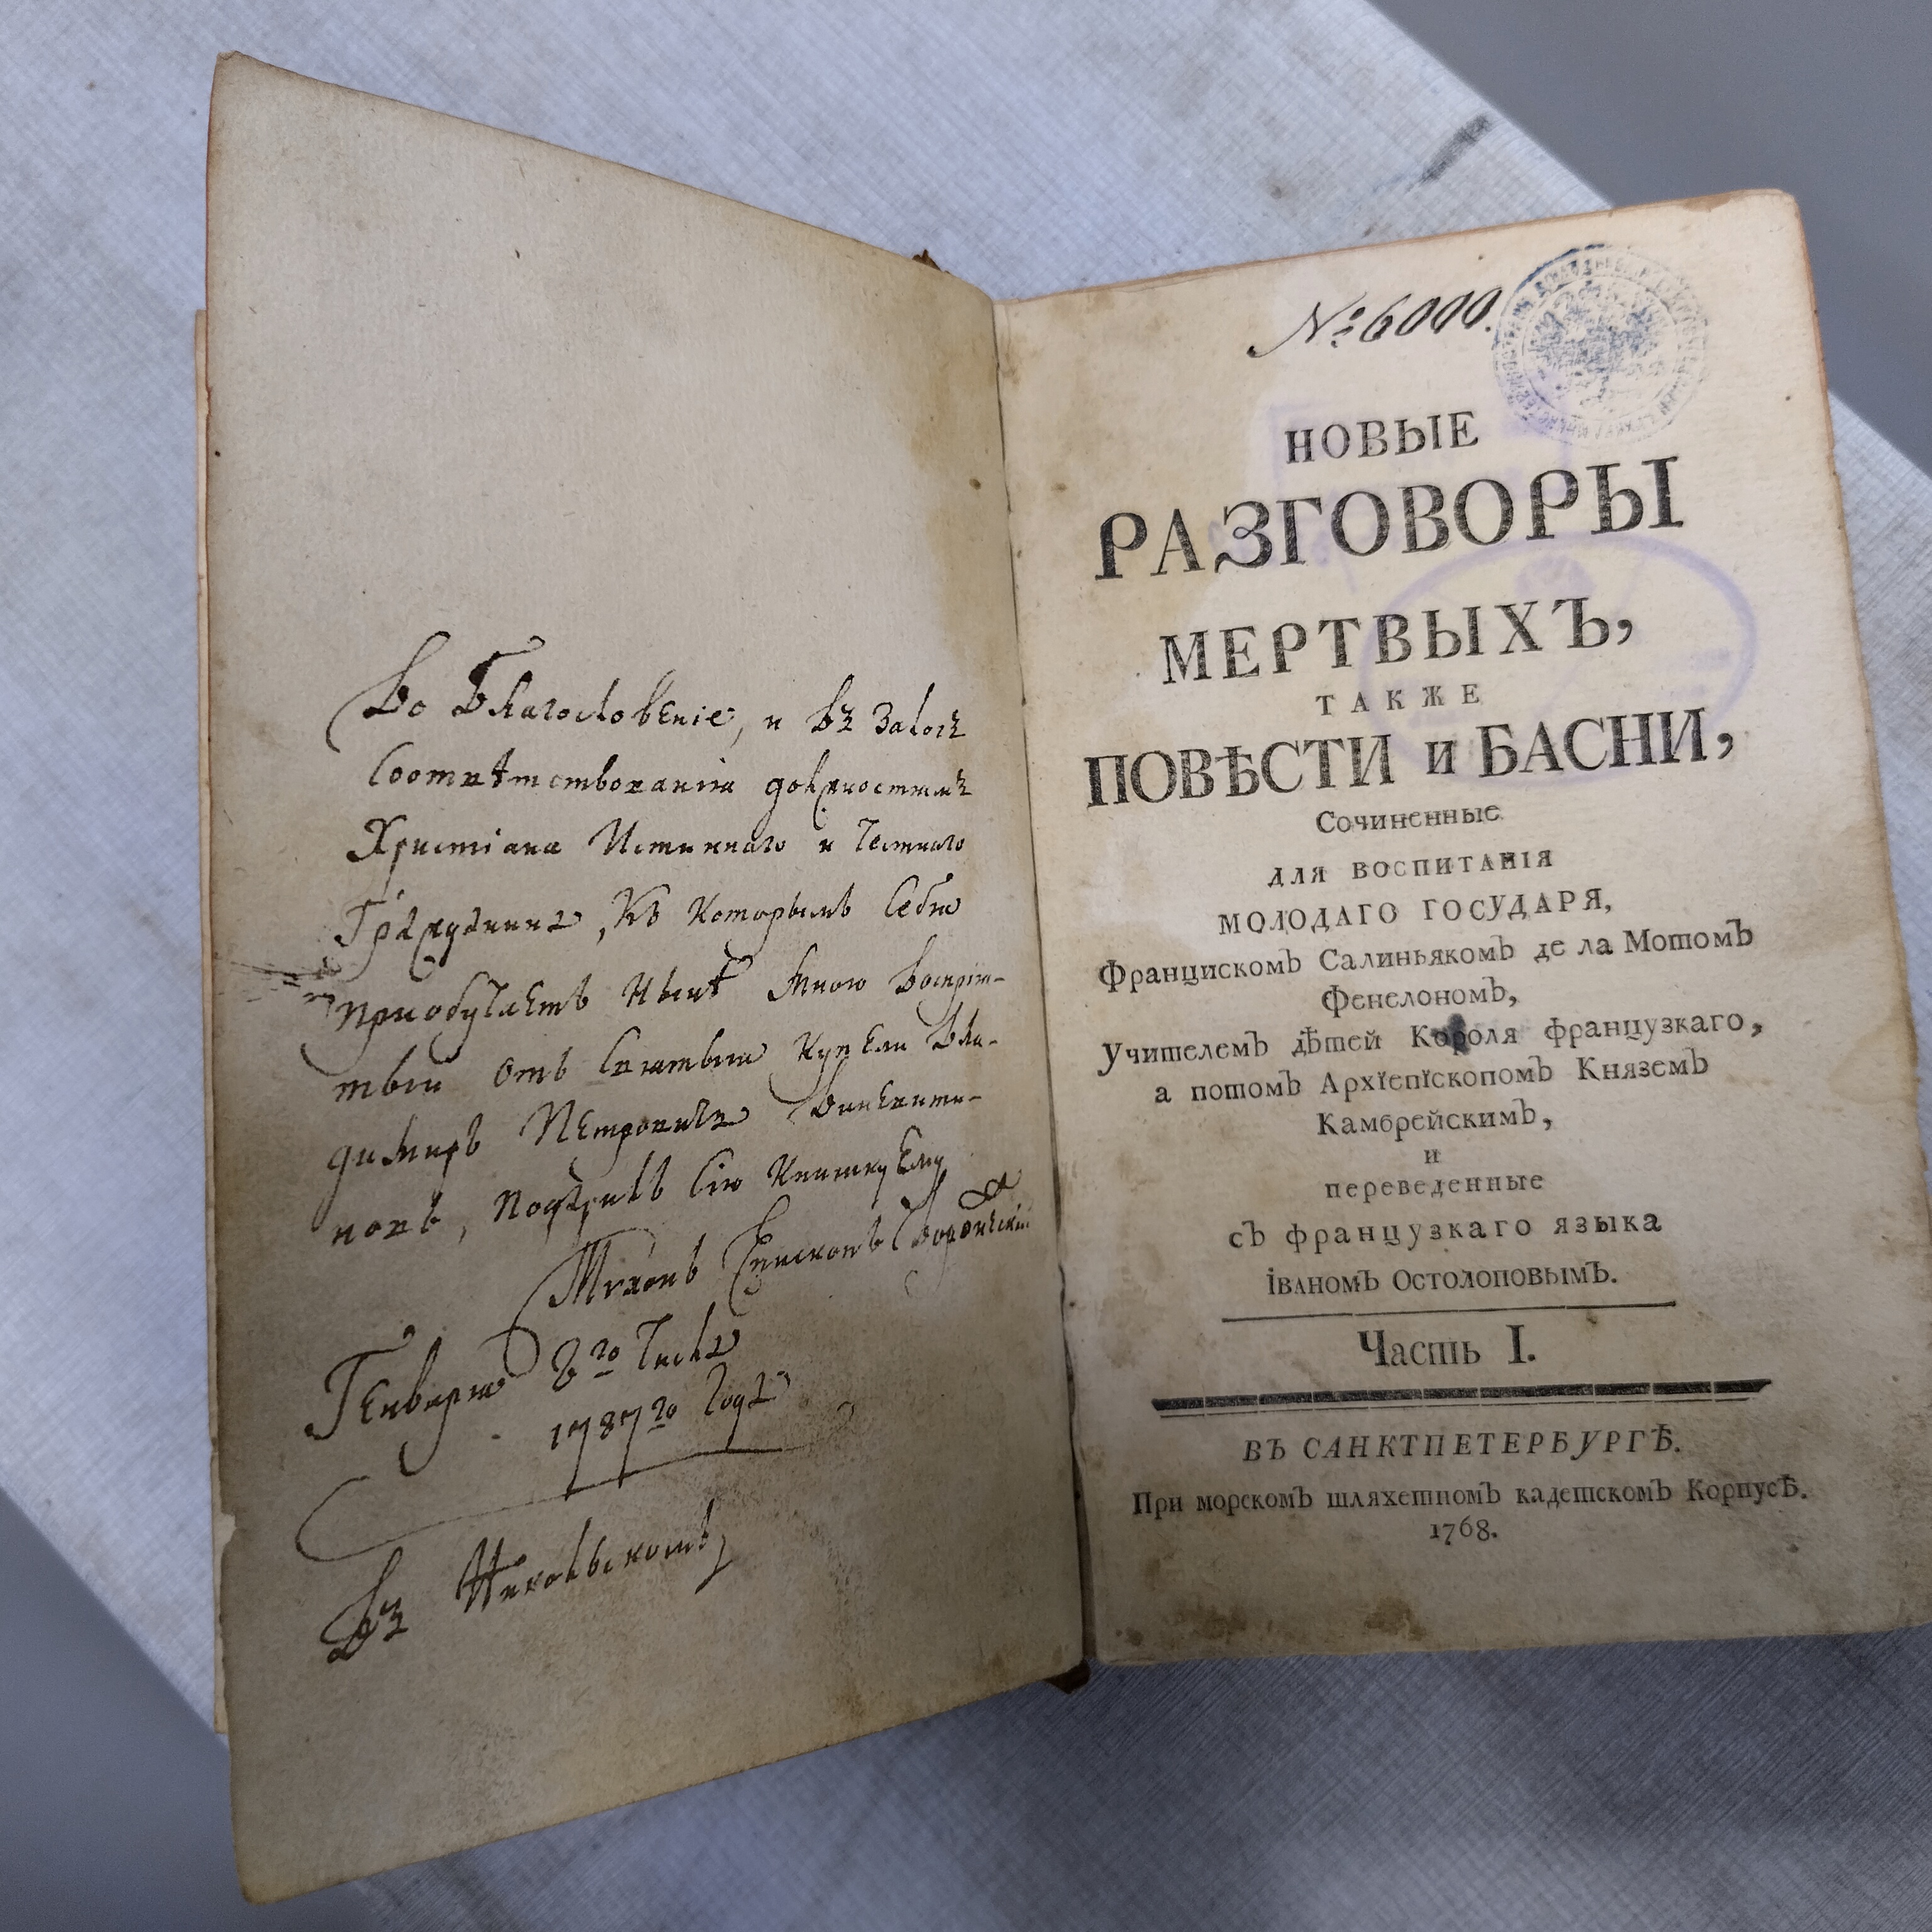 Во Благословенiе, и въ Залогъ
Соотвѣтствованiя должностямъ
Христiана Истиннаго и Честнаго
Гражданина, Къ Которымъ Себя
приобучаетъ Нынѣ Мною Воспрiя-
тый Отъ Святыя Купели Вла-
димиръ Петровичъ Вине
новъ, Подарилъ Сiю Книжку Ему
Тихонъ Епископъ Воронежскiй
Генваря 8го Числа
1787го Года
Въ Никольскомъ
№ 6000.
НОВЫЕ
РАЗГОВОРЫ
МЕРТВЫХЪ,
ТАКЖЕ
ПОВѢСТИ и БАСНИ,
Сочиненные
для воспитанія
молодаго государя,
Францискомъ Салиньякомъ де ла Мотомъ
Фенелономъ,
Учителемъ дѣтей Короля французкаго,
а потомъ Архїепїскопомъ Княземъ
Камбрейскимъ,
и
переведенные
съ французкаго языка
Іваномъ Остолоповымъ.
Часть I.
ВЪ САНКТПЕТЕРБУРГѢ.
При морскомъ шляхетномъ кадетскомъ Корпусѣ.
1768.